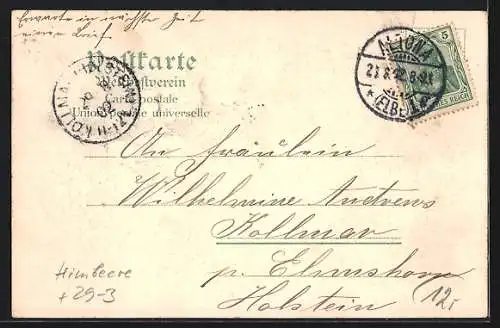 Erwarte in nächster Zeit
einen Brief
Postkarte
Weltpostverein
Carte postale
Union postale universelle
ALTONA
8-9N
*(ELBE)1*
5
REICH
KOLLMAR (HOLSTEIN)
An Fräulein
Wilhelmine Andrens
Kollmar
p. Elmshorn
Holstein
Himbeere
+29-3
12,-